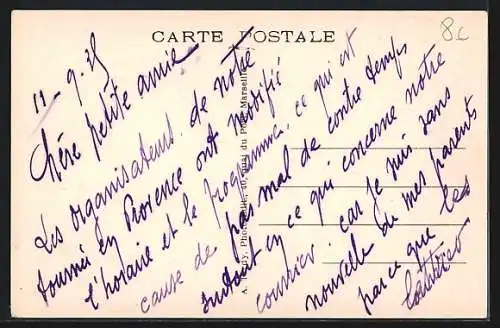 CARTE POSTALE
8c
11-9.25
Chère petite amie
Les organisateurs de notre
tournée en Provence ont modifié
l'horaire et le programme, ce qui est
cause de pas mal de contre temps
surtout en ce qui concerne notre
courrier. car je suis sans
nouvelle de mes parents
parce que les
Photo, 10, Quai du Port, Marseille